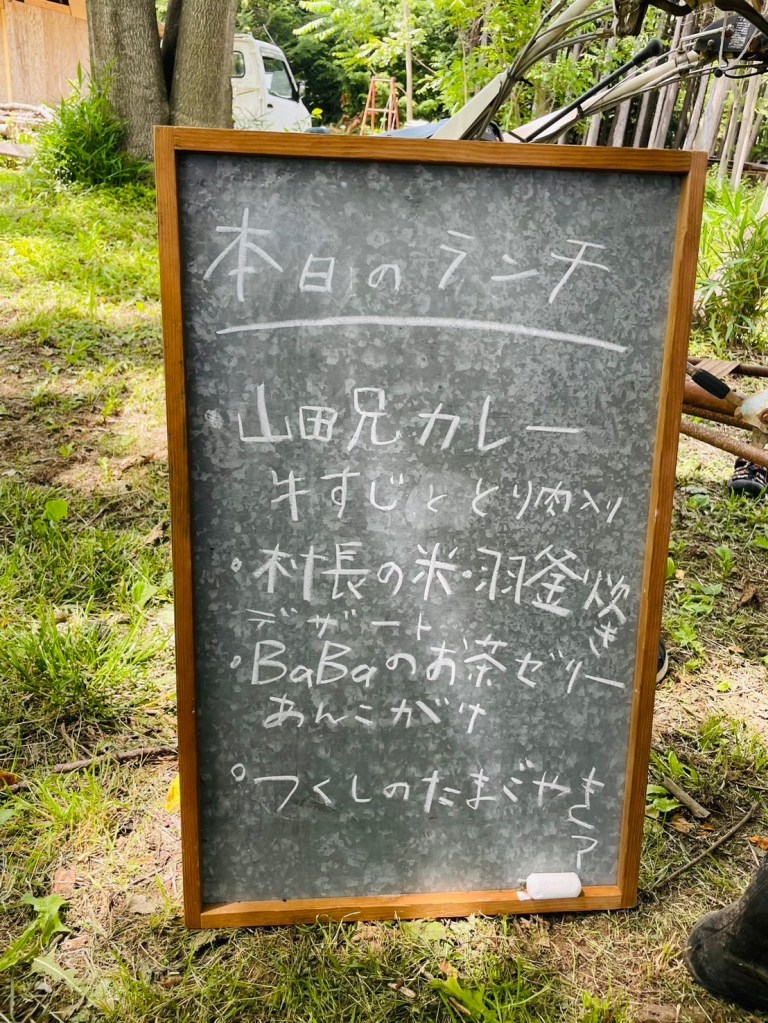 本日のランチ
山田兄カレー
牛すじととり肉入り
村長の米・羽釜炊き
デザート
BaBaのお茶ゼリー
あんこがけ
つくしのたまごやき